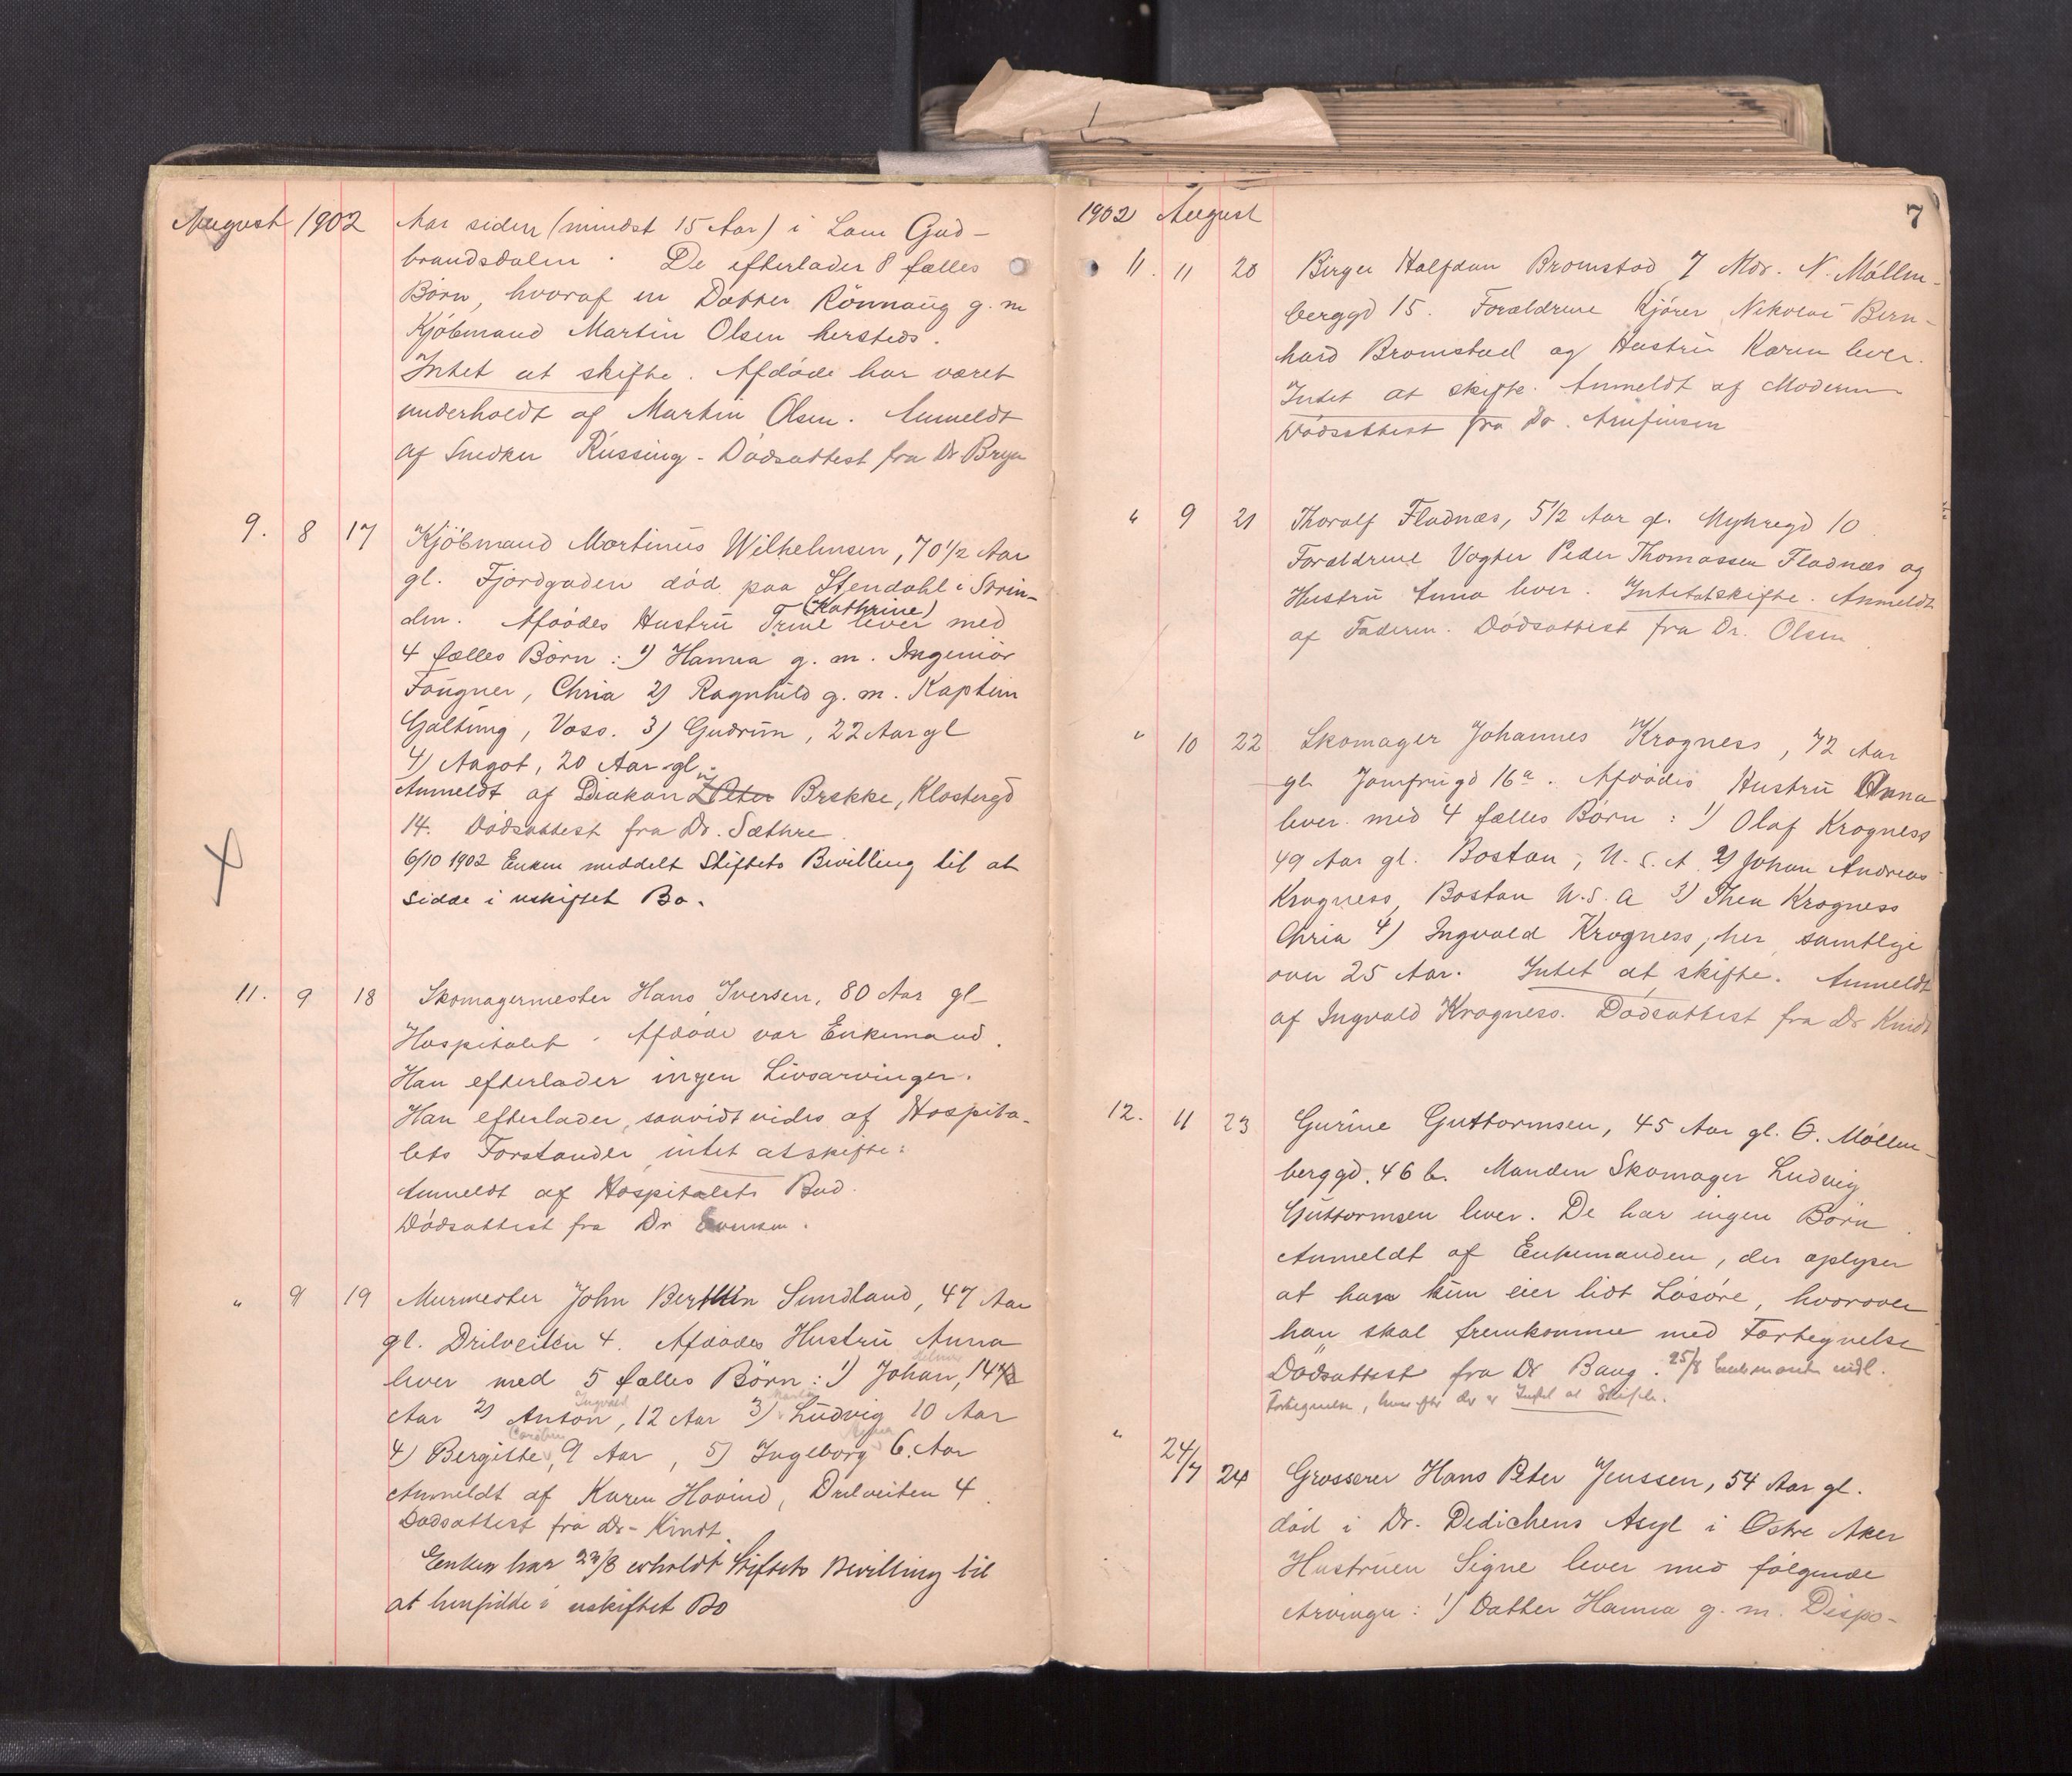 August 1902
Aar siden (mindst 15 Aar) i Lom Gud-
brandsdalen. De efterlader 8 fælles
Børn, hvoraf en Datter Rönnaug g. m
Kjöbmand Martin Olsen hersteds.
Intet at skifte. Afdöde har været
underholdt af Martin Olsen. Anmeldt
af Snedker Russing - Dödsattest fra Dr Bryn
9. 8 17 Kjöbmand Martinus Wilhelmsen, 70 1/2 Aar
gl. Fjordgaden död paa Stendahl i Strin-
(Kathrine)
den. Afdödes Hustru Trine lever med
4 fælles Börn: 1) Hanna g. m. Ingeniör
Fougner, Chria 2) Ragnhild g. m. Kaptein
Galtung, Voss. 3) Gudrun, 22 Aar gl
4) Aagot, 20 Aar gl.
Anmeldt af Diakon Brekke, Klostergd
14. Dödsattest fra Dr. Sæthre.
6/10 1902 Enken meddelt Stiftets Bevilling til at
sidde i uskiftet Bo.
11. 9 18 Skomagermester Hans Iversen, 80 Aar gl
Hospitalet. Afdöde var Enkemand.
Han efterlader ingen Livsarvinger.
Han efterlader, saavidt vides af Hospita-
lets Forstander intet at skifte:
Anmeldt af Hospitalets Bud.
Dödsattest fra Dr
" 9 19 Murmester John Berthin Sundland, 47 Aar
gl. Drilveiten 4. Afdödes Hustru Anna
lever med 5 fælles Börn: 1) Johan, 14
Ingvald
Aar 2) Anton, 12 Aar 3) Ludvig 10 Aar
4) Bergitte, 9 Aar, 5) Ingeborg 6. Aar
Anmeldt af Karen Hovind, Drilveiten 4.
Dödsattest fra Dr- Kindt.
Enken har 23/8 erholdt Stiftets Bevilling til
at hensidde i uskiftet Bo
1902 August 7
11. 11 20 Birger Halfdan Bromstad 7 Mdr. N. Möllen-
berggd 15. Forældrene Kjörer Nikolai Bern-
hard Bromstad og Hustru Karen lever.
Intet at skifte. Anmeldt af Moderen
Dödsattest fra Dr. Arnfinsen
" 9 21 Thoralf Fladnæs, 5 1/2 Aar gl. Myhregd 10.
Forældrene Vogter Peder Thomassen Fladnæs og
Hustru Anna lever. Intet at skifte. Anmeldt
af Faderen. Dödsattest fra Dr. Olsen.
" 10 22 Skomager Johannes Krogness, 72 Aar
gl. Jomfrugd 16a. Afdödes Hustru Anna
lever med 4 fælles Börn: 1) Olaf Krogness
49 Aar gl. Boston, U.S.A 2) Johan Andreas
Krogness, Boston U.S.A 3) Thea Krogness
Chria 4) Ingvald Krogness, her, samtlige
over 25 Aar. Intet at skifte. Anmeldt
af Ingvald Krogness. Dödsattest fra Dr Kindt
12. 11 23 Gurine Guttormsen, 45 Aar gl. Ö. Möllen-
berggd. 46 b. Manden Skomager Ludvig
Guttormsen lever. De har ingen Börn.
Anmeldt af Enkemanden, der oplyser
at han kun eier lidt Lösöre, hvorover
han skal fremkomme med Fortegnelse
Dödsattest fra Dr Baug. 25/8 Enkemanden indl.
Fortegnelse, hvorefter der er Intet at Skifte.
" 24/7 24 Grosserer Hans Peter Jenssen, 54 Aar gl.
död i Dr. Dedichens Asyl i Östre Aker
Hustruen Signe lever med fölgende
Arvinger: 1) Datter Hanna g. m. Dispo-